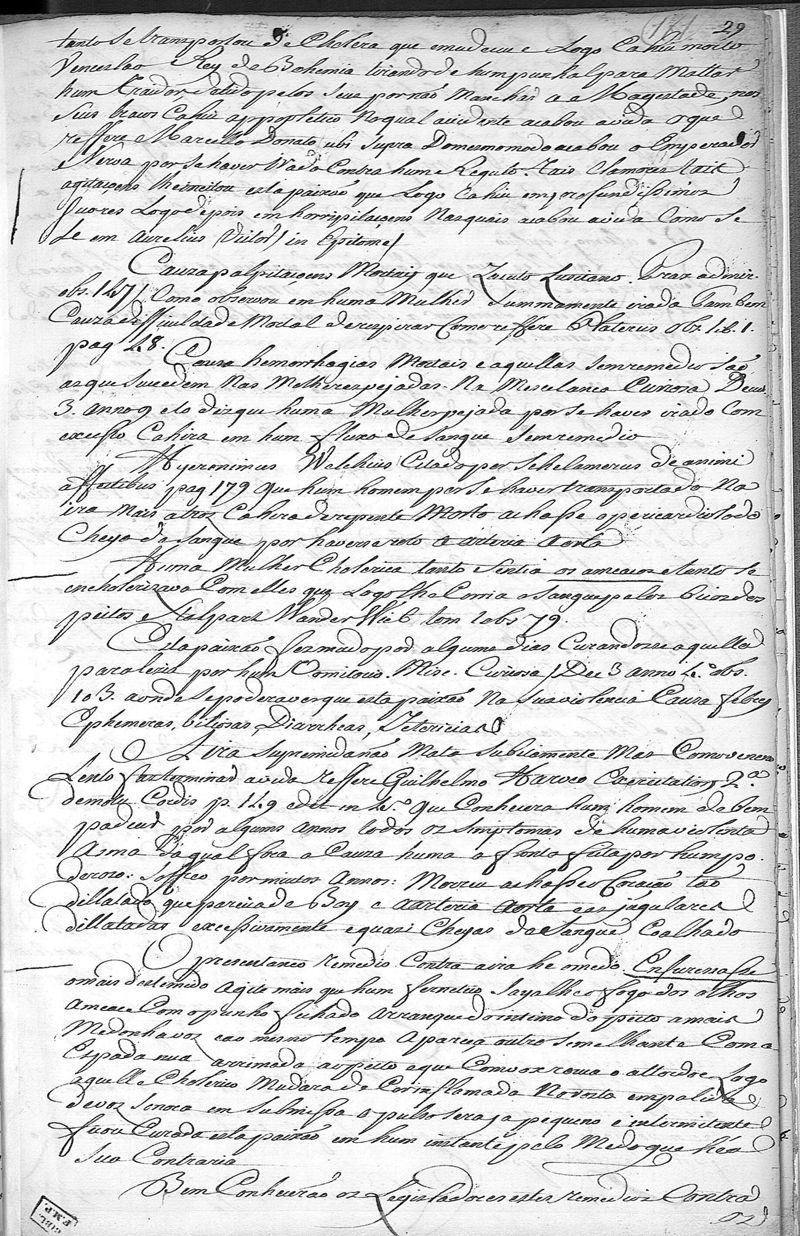 (161) 29
tanto se transportou de Cholera que emudeceu e Logo Cahiu morto
Vencesláo Rey de Bohemia tirando de hum punhal para Mattar
hum Traidor detido pelos seus por não Manchar a Magestade, nos
Seus braços Cahiu appopletico No qual accidente acabou a vida o que
reffere Marcello Donato ubi supra Do mesmo modo acabou o Emperador
Nerva por se haver Irado Contra hum Regulo. Tais Clamores tais
agitaçoens lhe excitou esta paixão que Logo Cahiu em profundissimos
Suores Logo depois em horripilaçoens Nas quais acabou a vida Como se
Le em Aurelius Victor / in Epitome /
Cauza palpitaçoens Mortais que Zacuto Luzitano Prax admir.
obs. 147 / Como observou em huma Mulher Summamente irada Tambem
Cauza difficuldade Mortal de respirar Como reffere Platerus obs lib. 1.
pag 48. Causa hemorrhagias Mortais e aquellas sem remedio são
as que sucedem Nas Molheres pejadas. Na Mescelanea Curiosa Decur
3. anno 9 e 10 diz que huma Mulher pejada por se haver irado Com
excesso Cahira em hum fluxo de sangue sem remedio
Hyeronimus Walchius Citado por Schelamerus de animi
affectibus pag 179 que hum homem por se haver transportado Na
ira Mais atroz Cahira de repente Morto achasse o pericardio todo
Cheyo de Sangue por haverse roto a arteria Aorta
Huma Mulher Cholerica tanto Sentia os ameaços e tanto se
encholerizava Com elles que Logo lhe Corria o Sangue pelos bicos dos
peitos Stalpart Wander Wiel tom 1 obs 79.
Esta paixão fez mudo por alguns dias Curandose aquella
paralezia por hum Vomitorio. Misc. Curiosa / Dec 3 anno 4.º obs.
103. aonde se poderá ver que esta paixão Na sua violencia Causa febres
Ephemeras, biliosas, Diarrheas, Ictericias
A Ira Supremida não Mata Subitamente Mas Como veneno
Lento faz terminar a vida reffere Guilhelmo Harveo Exercitation 2.ª
de motu Cordis p. 149 edit in 4.º que Conhecera hum homem
padecer por alguns annos todos os Simptomas de huma violenta
Asma da qual fora a Cauza huma affronta feita por hum po-
deroso: Soffreo por muitos Annos: Morreu achasse o Coração tão
dillatado que parecia de Boy e a arteria Aorta e as jugulares
dillatadas excessivamente e quasi Cheyas de Sangue Coalhado
O presentaneo remedio Contra a ira he o medo. Enfuressasse
o mais destemido agite mais que hum frenetico Saya lhe o fogo dos olhos
Ameace Com o punho fechado arranque do intimo do peito a mais
Medonha voz e ao mesmo tempo Apareça outro Semelhante Com a
Espada nua arrimada ao peito e que Com voz rouca o attorde Logo
aquelle Cholerico Mudara de Cor inflamada No rosto em palida
de voz Sonora em Submissa o pulso sera ja pequeno e intermitente
ficou Curada esta paixão em hum instante pelo Medo que he a
Sua Contraria
Bem Conhecerão os Legisladores estes remedios Contra
BIBL.
F.M.P.